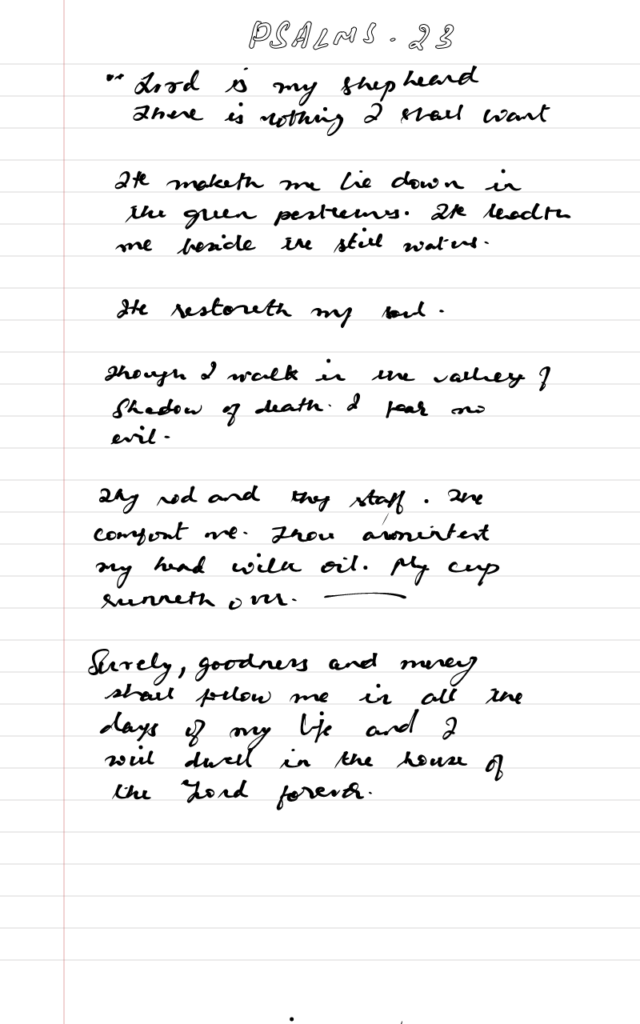 PSALMS. 23
" Lord is my shepheard
There is nothing I shall want
He maketh me lie down in
the green pestremes. He leadth
me beside the still waters.
He restoreth my soul.
Though I walk in the valley of
Shadow of death. I fear no
evil.
Thy rod and thy staff. The
comfort me. Thou anointest
my head with oil. My cup
runneth over.
Surely, goodness and mercy
shall follow me in all the
days of my life and I
will dwell in the house of
the Lord forever.